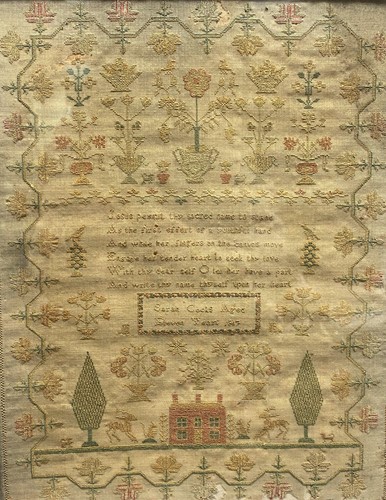 permit thy sacred name to
As the first effort of a hand
And while her fingers on the canvas move
Engage her tender heart to seek thy love
With thy dear self O let her have a part
And write thy name thyself upon her heart
Sarah Aged
Years